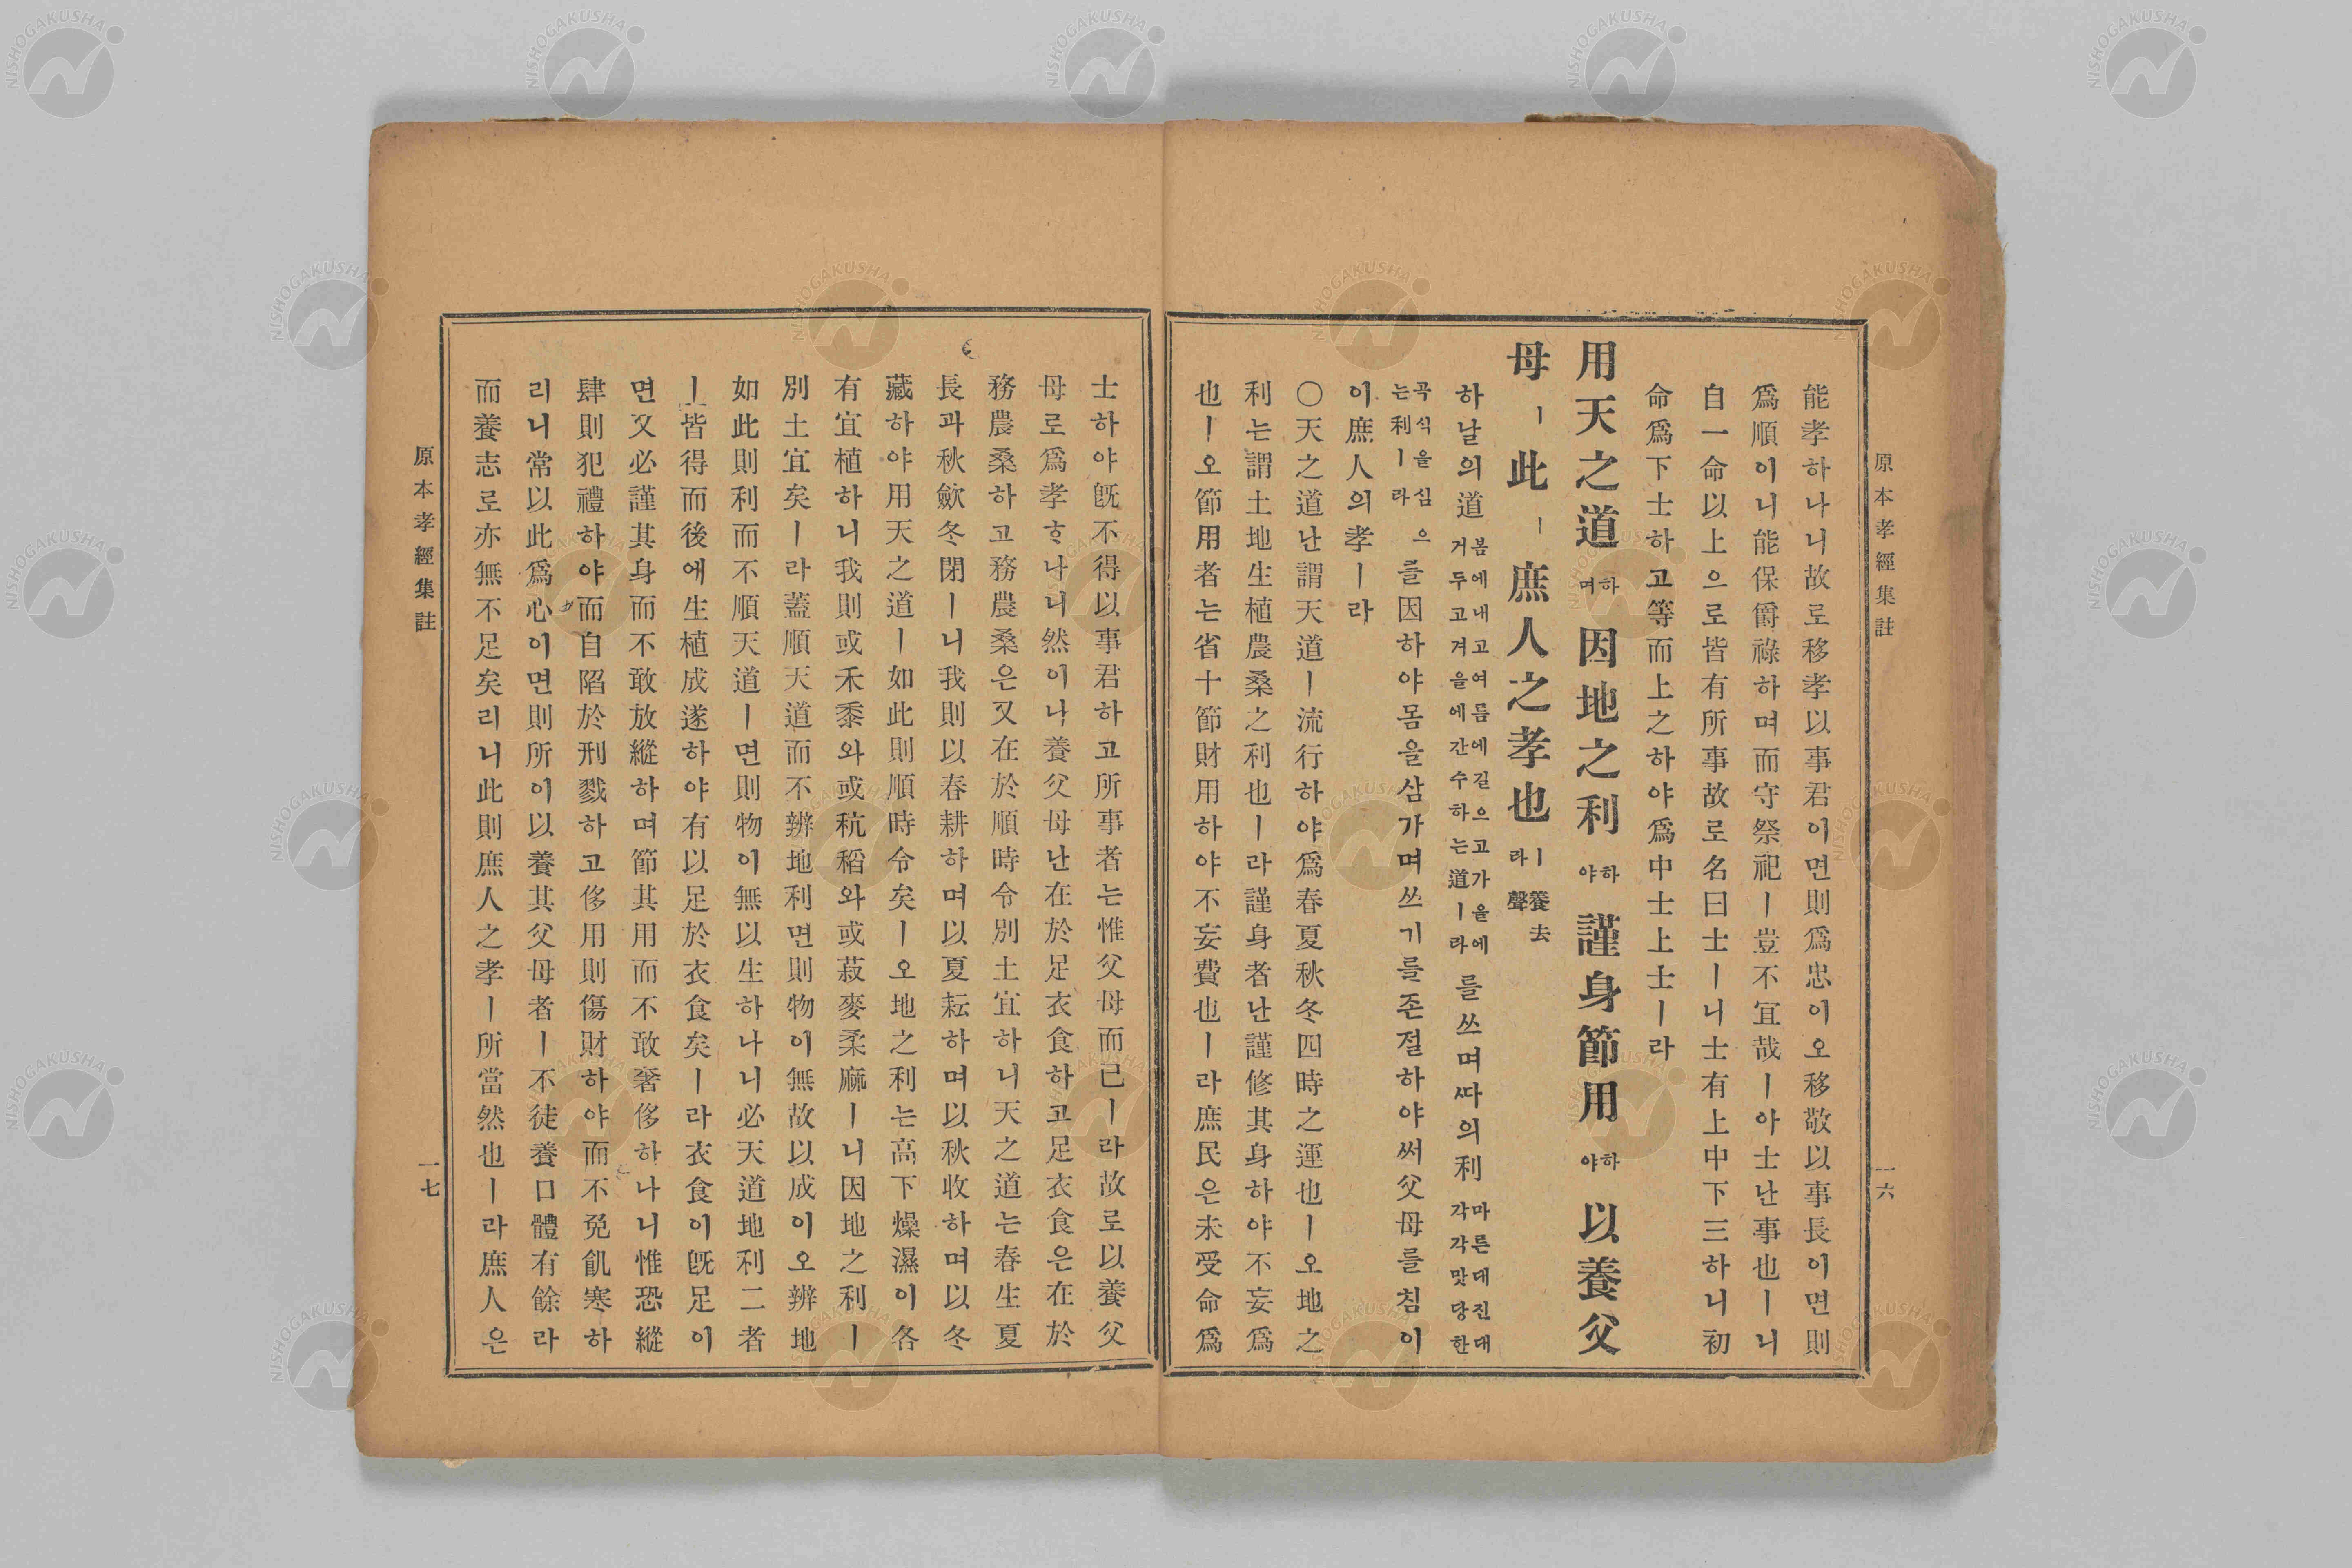 原本孝經集註
一六
能孝하나니故로移孝以事君이면則爲忠이오移敬以事長이면則
爲順이니能保爵祿하며而守祭祀ㅣ豈不宜哉ㅣ아士난事也ㅣ니
自一命以上으로皆有所事故로名曰士ㅣ니士有上中下三하니初
命爲下士하고等而上之하야爲中士上士ㅣ라
用天之道하며因地之利하야謹身節用하야以養父
母ㅣ此ㅣ庶人之孝也ㅣ라養去聲
하날의道봄에내고여름에길으고가을에거두고겨을에간수하는道ㅣ라를쓰며따의利마른대진대각각맛당한
곡식을심으는利ㅣ라를因하야몸을삼가며쓰기를존절하야써父母를침이
이庶人의孝ㅣ라
〇天之道난謂天道ㅣ流行하야爲春夏秋冬四時之運也ㅣ오地之
利는謂土地生植農桑之利也ㅣ라謹身者난謹修其身하야不妄爲
也ㅣ오節用者는省十節財用하야不妄費也ㅣ라庶民은未受命爲
士하야旣不得以事君하고所事者는惟父母而已ㅣ라故로以養父
母로爲孝ㅎ나니然이나養父母난在於足衣食하고足衣食은在於
務農桑하고務農桑은又在於順時令別土宜하니天之道는春生夏
長과秋歛冬閉ㅣ니我則以春耕하며以夏耘하며以秋收하며以冬
藏하야用天之道ㅣ如此則順時令矣ㅣ오地之利는高下燥濕이各
有宜植하니我則或禾黍와或秔稻와或菽麥柔麻ㅣ니因地之利ㅣ
別土宜矣ㅣ라蓋順天道而不辨地利면則物이無故以成이오辨地
如此則利而不順天道ㅣ면則物이無以生하나니必天道地利二者
ㅣ皆得而後에生植成遂하야有以足於衣食矣ㅣ라衣食이旣足이
면又必謹其身而不敢放縱하며節其用而不敢奢侈하나니惟恐縱
肆則犯禮하야而自陷於刑戮하고侈用則傷財하야而不免飢寒하
리니常以此爲心이면則所이以養其父母者ㅣ不徒養口體有餘라
而養志로亦無不足矣리니此則庶人之孝ㅣ所當然也ㅣ라庶人은
原本孝經集註
一七
NISHOGAKUSHA